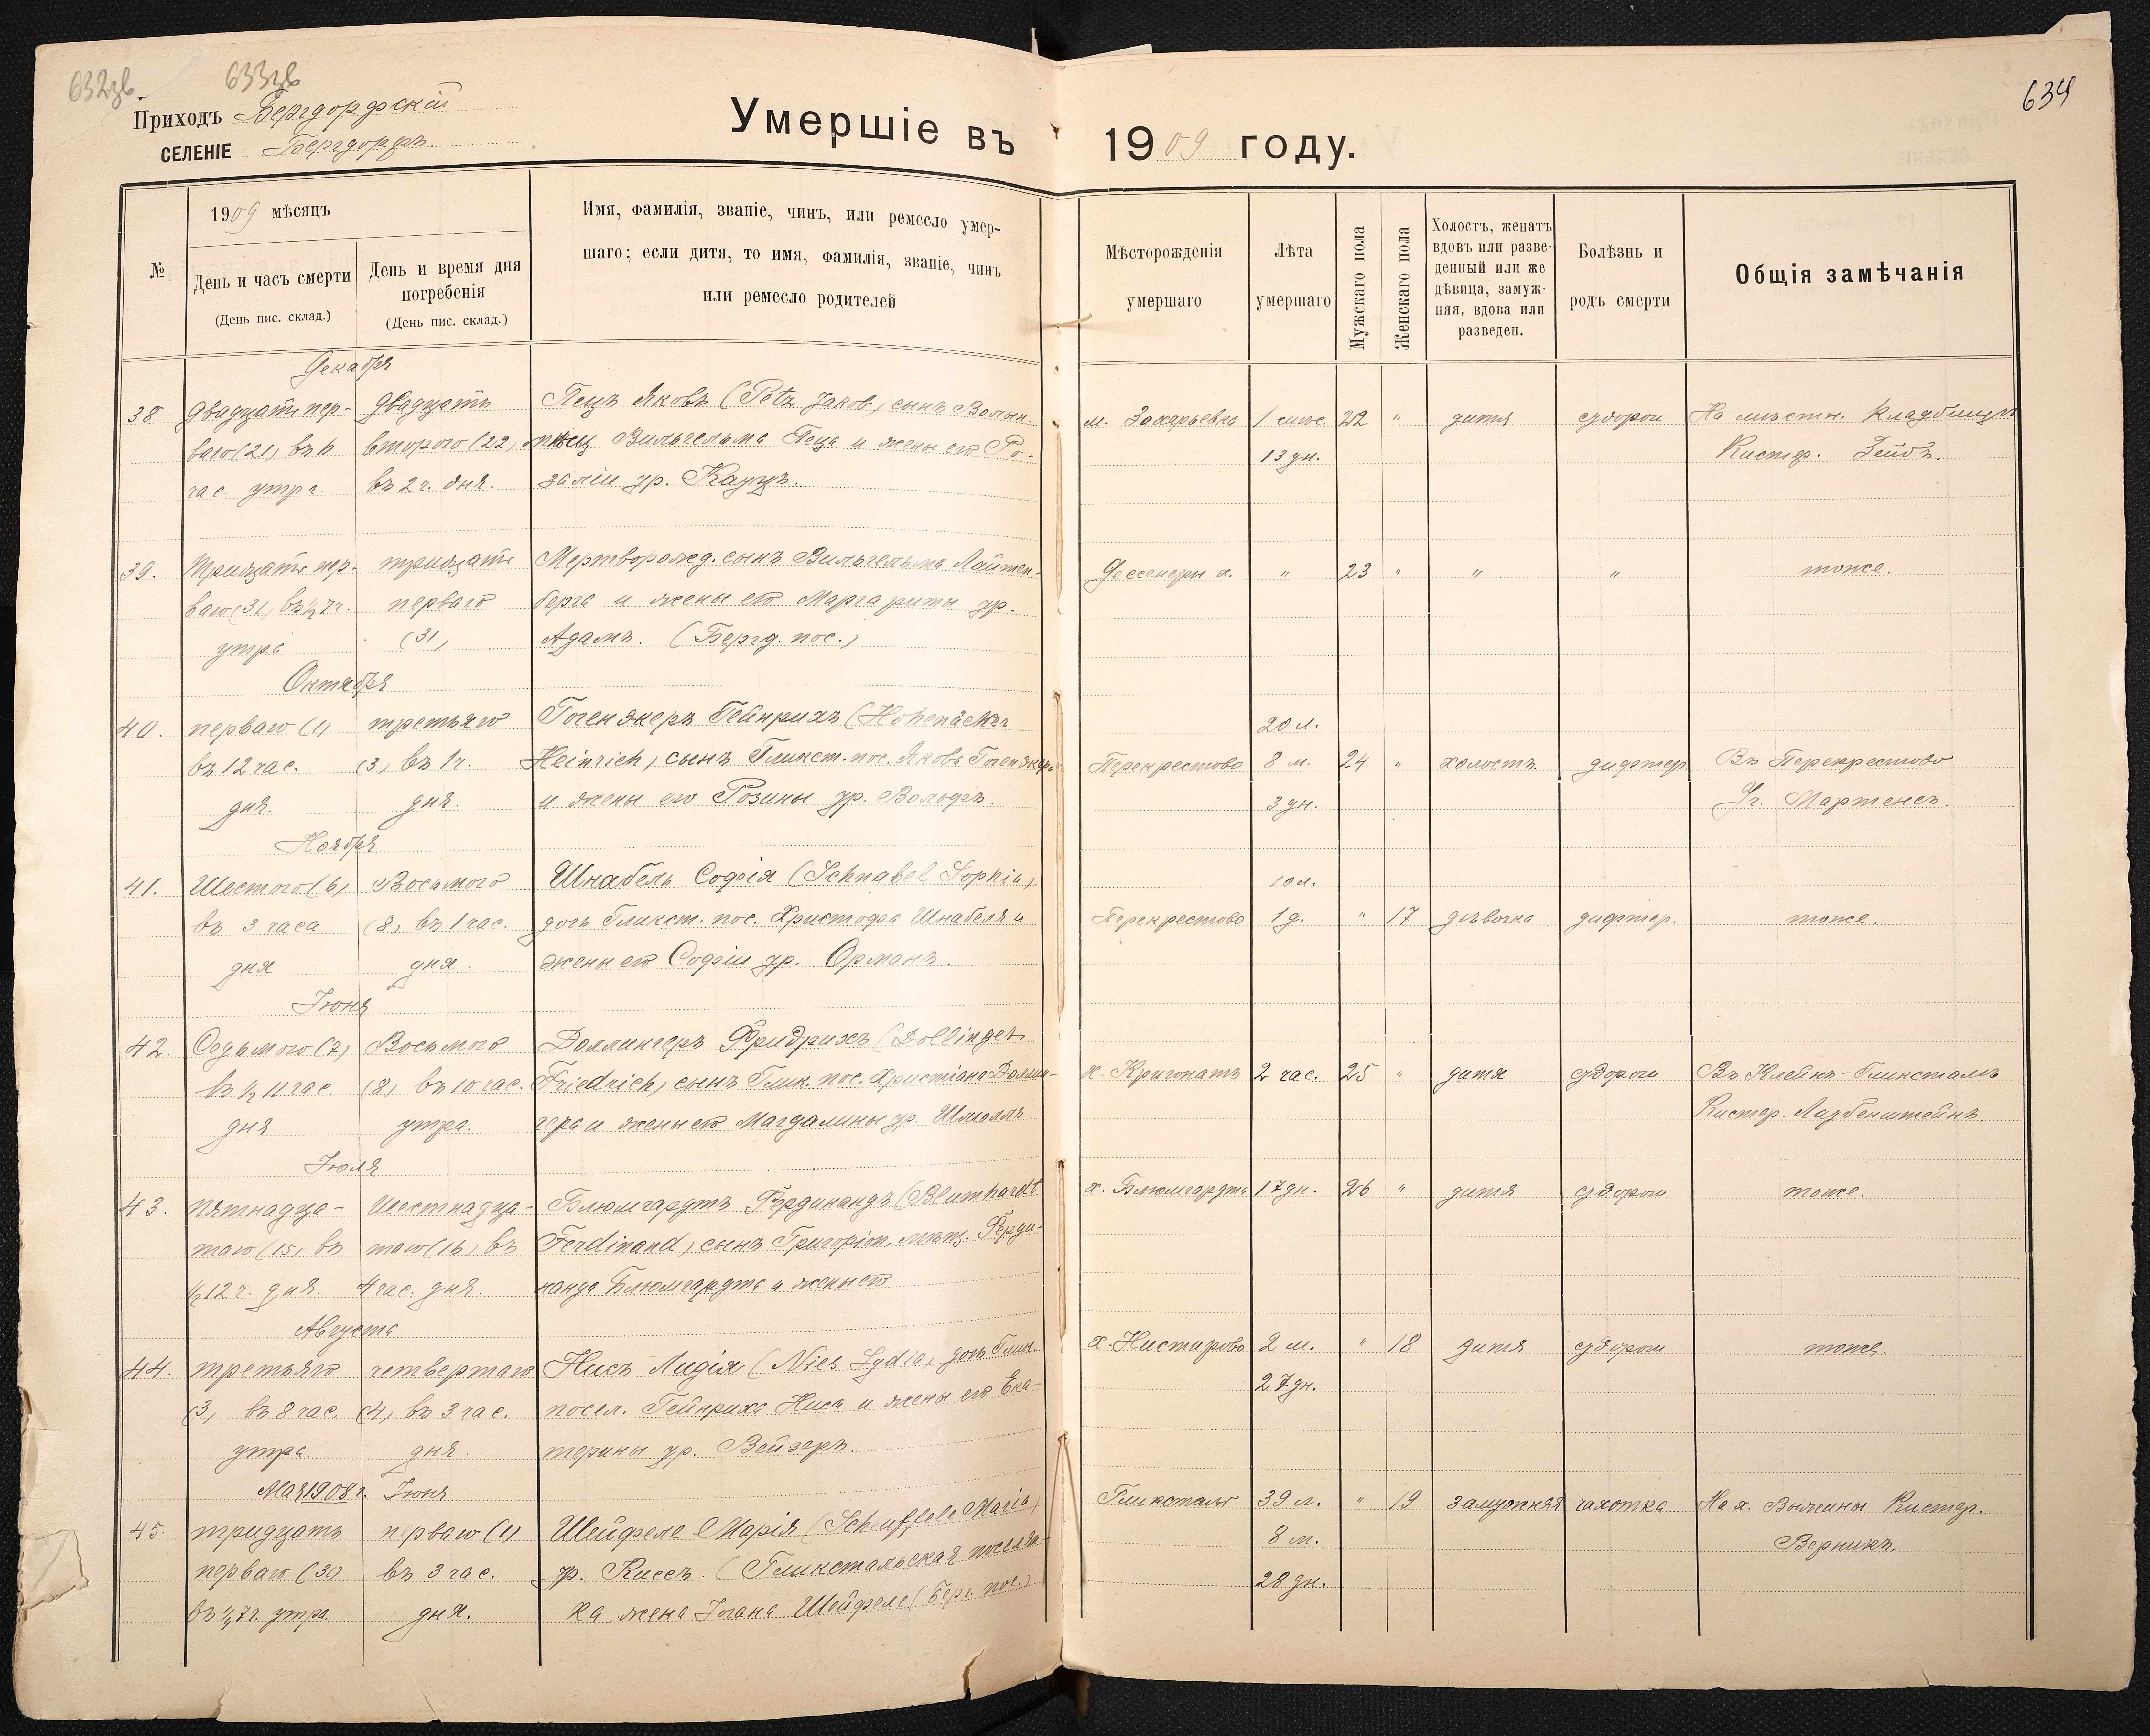 632зв. 633зв
634
Приходъ Бергдорфскій
СЕЛЕНІЕ Бергдорфъ.
Умершіе въ 1909 году.
№
1909 мѣсяцъ
День и часъ смерти
(День пис. склад.)
День и время дня
погребенія
(День пис. склад.)
Имя, фамилія, званіе, чинъ, или ремесло умер-
шаго; если дитя, то имя, фамилія, званіе, чинъ
или ремесло родителей
Мѣсторожденія
умершаго
Лѣта
умершаго
Мужскаго пола
Женскаго пола
Холостъ, женатъ
вдовъ или разве-
денный или же
дѣвица, замуж-
няя, вдова или
разведен.
Болѣзнь и
родъ смерти
Общія замѣчанія
Декабря
38 Двадцать пер- Двадцать Пецъ Яковъ (Petz Jakob), сынъ м. Захарьевка 1 22 " дитя судороги На мѣстн. кладбищѣ
ваго (21) въ 6 второго (22) Вильгельма Пеца и жены его Ро- 13 дн. Кистер. Зейбъ.
час. утра. въ 2 ч. дня. заліи ур. Кауцъ.
39. Тридцать пер- тридцать Мертворожд. сынъ Вильгельма Лайтен- х. " 23 " " " тоже.
ваго (31) въ ½ 7 ч. перваго берга и жены его Маргариты ур.
утра (31) Адамъ. (Бергд. пос.)
Октября
40. перваго (1) третьяго Гогенэкеръ Гейнрихъ (Hohenäcker 20 л.
въ 12 час. (3) въ 1 ч. Heinrich) сынъ Гликст. пос. Якова Гогенэкера Перекрестово 8 м. 24 " холостъ дифтер. Въ Перекрестово
дня. дня. и жены его Розины ур. Вольфъ. 3 дн. Уч. Мартенсъ.
Ноября
41. Шестого (6) Восьмого Шнабель Софія (Schnabel Sophia) 10 л.
въ 3 часа (8) въ 1 час. дочь Гликст. пос. Христофа Шнабеля и Перекрестово 1 д. " 17 дѣвочка дифтер. тоже.
дня дня. жены его Софіи ур. Орманъ.
Іюня
42. Седьмого (7) Восьмого Доллингеръ Фридрихъ (Dollinger
въ ½ 11 час. (8) въ 10 час. Friedrich) сынъ Глик. пос. Христіана Доллин- х. Кригонатъ 2 час. 25 " дитя судороги Въ Клейнъ-Гликсталь
дня утра. гера и жены его Магдалины ур. Шмолль Кистер. Лаубенштейнъ.
Іюля
43. пятнадца- Шестнадца- Блюмгардтъ Фердинандъ (Blumhardt х. Блюмгардта 17 дн. 26 " дитя судороги тоже.
таго (15) въ таго (16) въ Ferdinand) сынъ Григоріоп. мѣщ. Ферди-
½ 12 ч. дня. 4 час. дня. нанда Блюмгардта и жены его
Августа
44. третьяго четвертаго Нисъ Лидія (Nies Lydia) дочь Глик. х. Нистирово 2 м. " 18 дитя судороги тоже.
(3) въ 8 час. (4) въ 3 час. посел. Гейнриха Ниса и жены его Ека- 27 дн.
утра. дня. терины ур. Вейзеръ.
Мая 1908 г. Іюня
45. тридцать перваго (1) Шейфеле Марія (Scheuffele Maria) Гликсталь 39 л. " 19 замужняя чахотка На х. Кистер.
перваго (31) въ 3 час. ур. Киссъ (Гликстальская поселян- 8 м. Вернихъ.
въ ½ 7 ч. утра. дня. ка, жена Іогана Шейфеле (Берг. пос.) 28 дн.